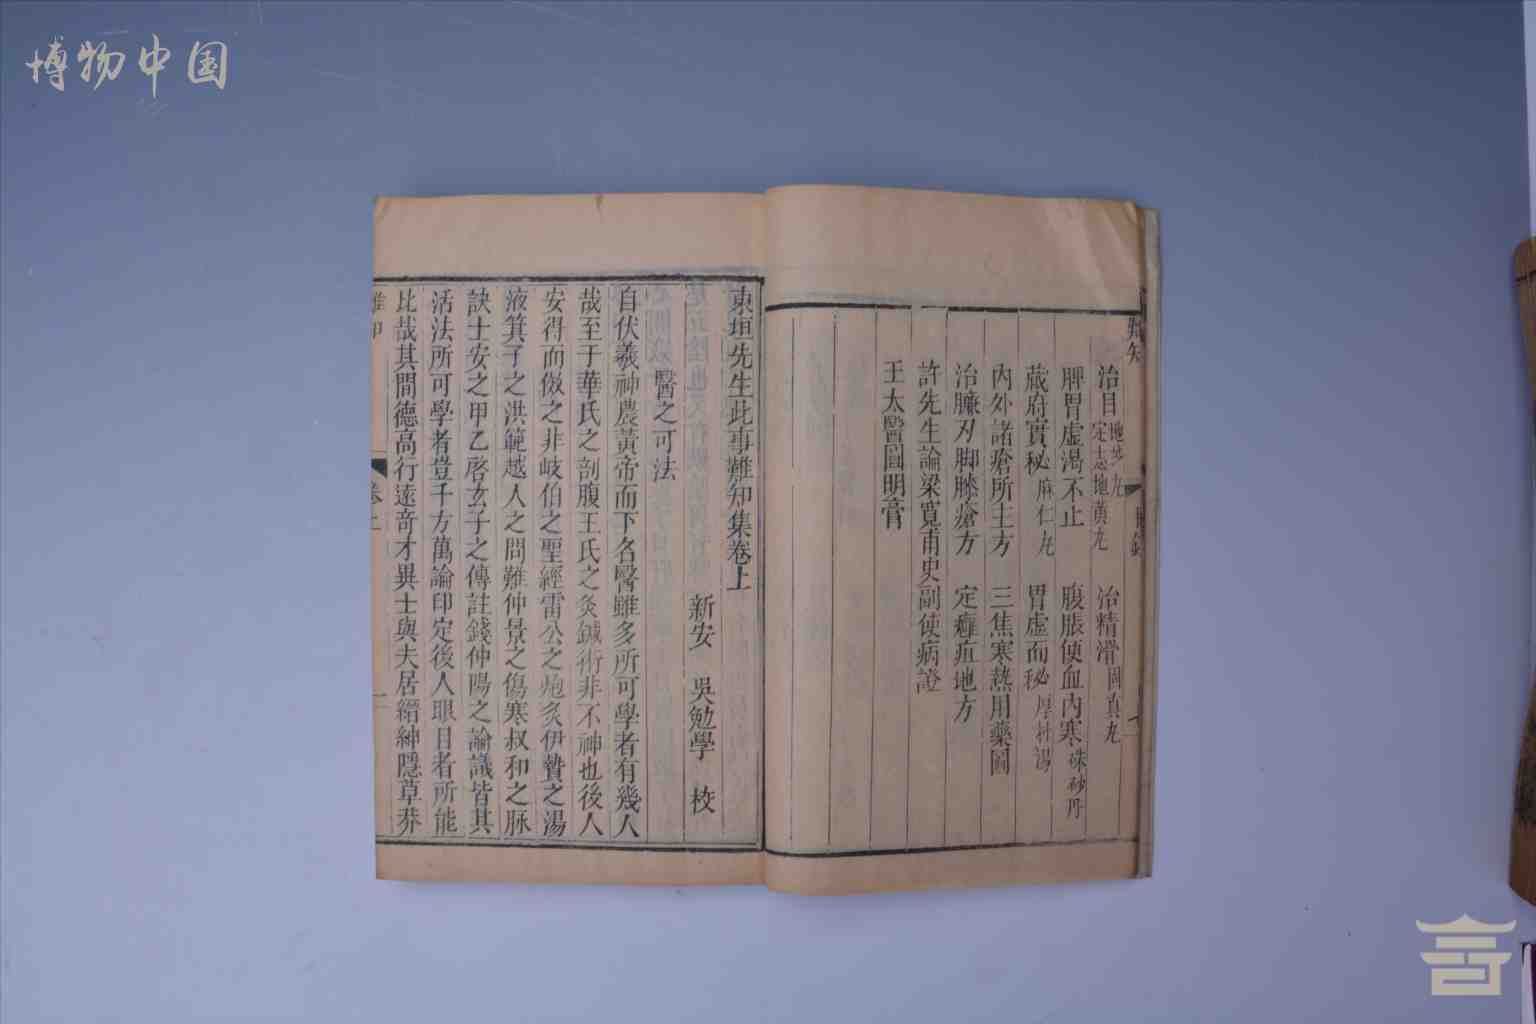 博物中国
治目 地芝丸 定志地黃丸 治精滑 固真丸
脾胃虛渴不止 腹脹使血內寒 硃砂丹
蔵府實秘 麻仁丸 胃虛而秘 厚朴湯
內外諸瘡所主方 三焦寒熱用藥圖
治臁刃脚膝瘡方 定癰疽地方
許先生論梁寬甫史副使病證
王太醫圓明膏
東垣先生此事難知集卷上
新安 吳勉學 校
醫之可法
自伏羲神農黃帝而下名醫雖多所可學者有幾人
哉至于華氏之剖腹王氏之灸鍼術非不神也後人
安得而倣之非岐伯之聖經雷公之炮炙伊贄之湯
液箕子之洪範越人之問難仲景之傷寒叔和之脉
訣士安之甲乙啓玄子之傳註錢仲陽之論議皆其
活法所可學者豈千方萬論印定後人眼目者所能
比哉其間德高行遠奇才異士與夫居縉紳隱草莽
卷上